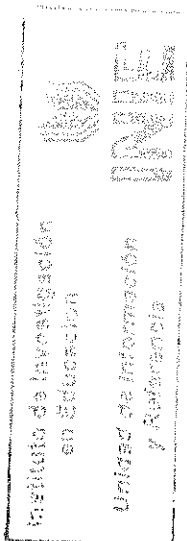 Instituto de Investigación
en Educación
INIE
Unidad de Información
y Referencia